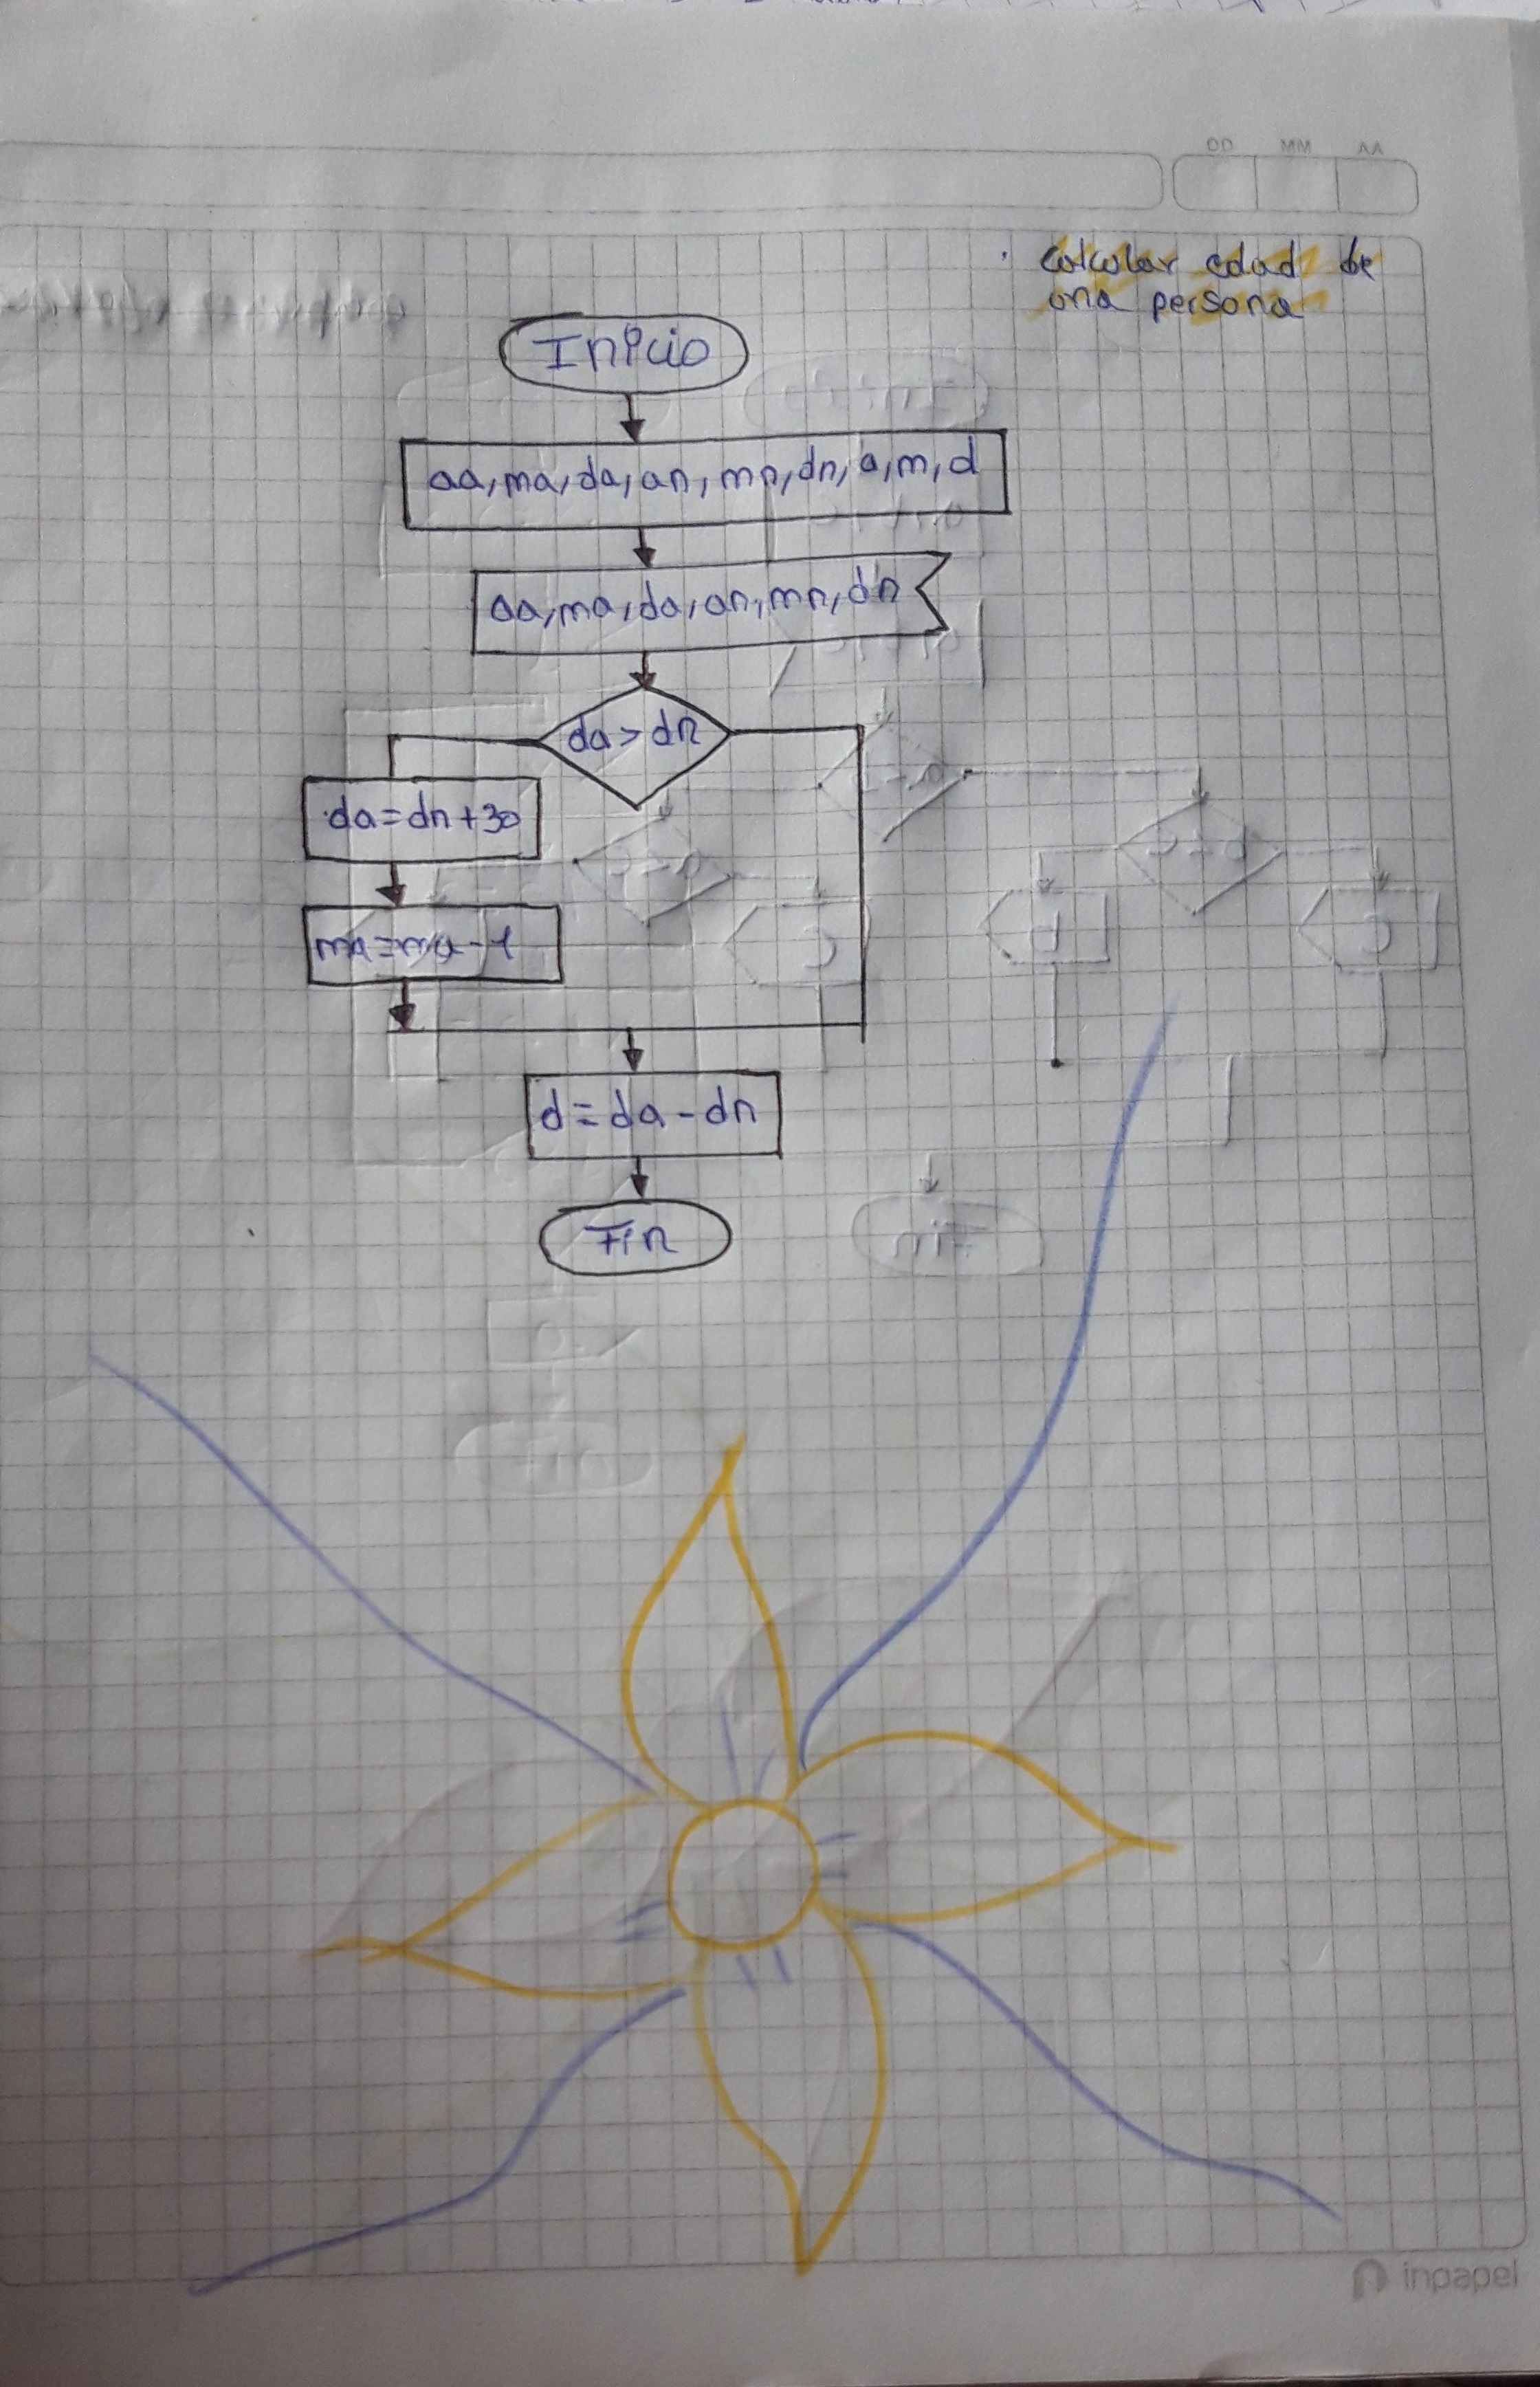 DD MM AA
Calcular edad de
una persona
Inicio
aa, ma, da, an, mn, dn, a, m, d
aa, ma, da, an, mn, dn
da > dn
da = dn + 30
ma = ma - 1
d = da - dn
Fin
inpapel